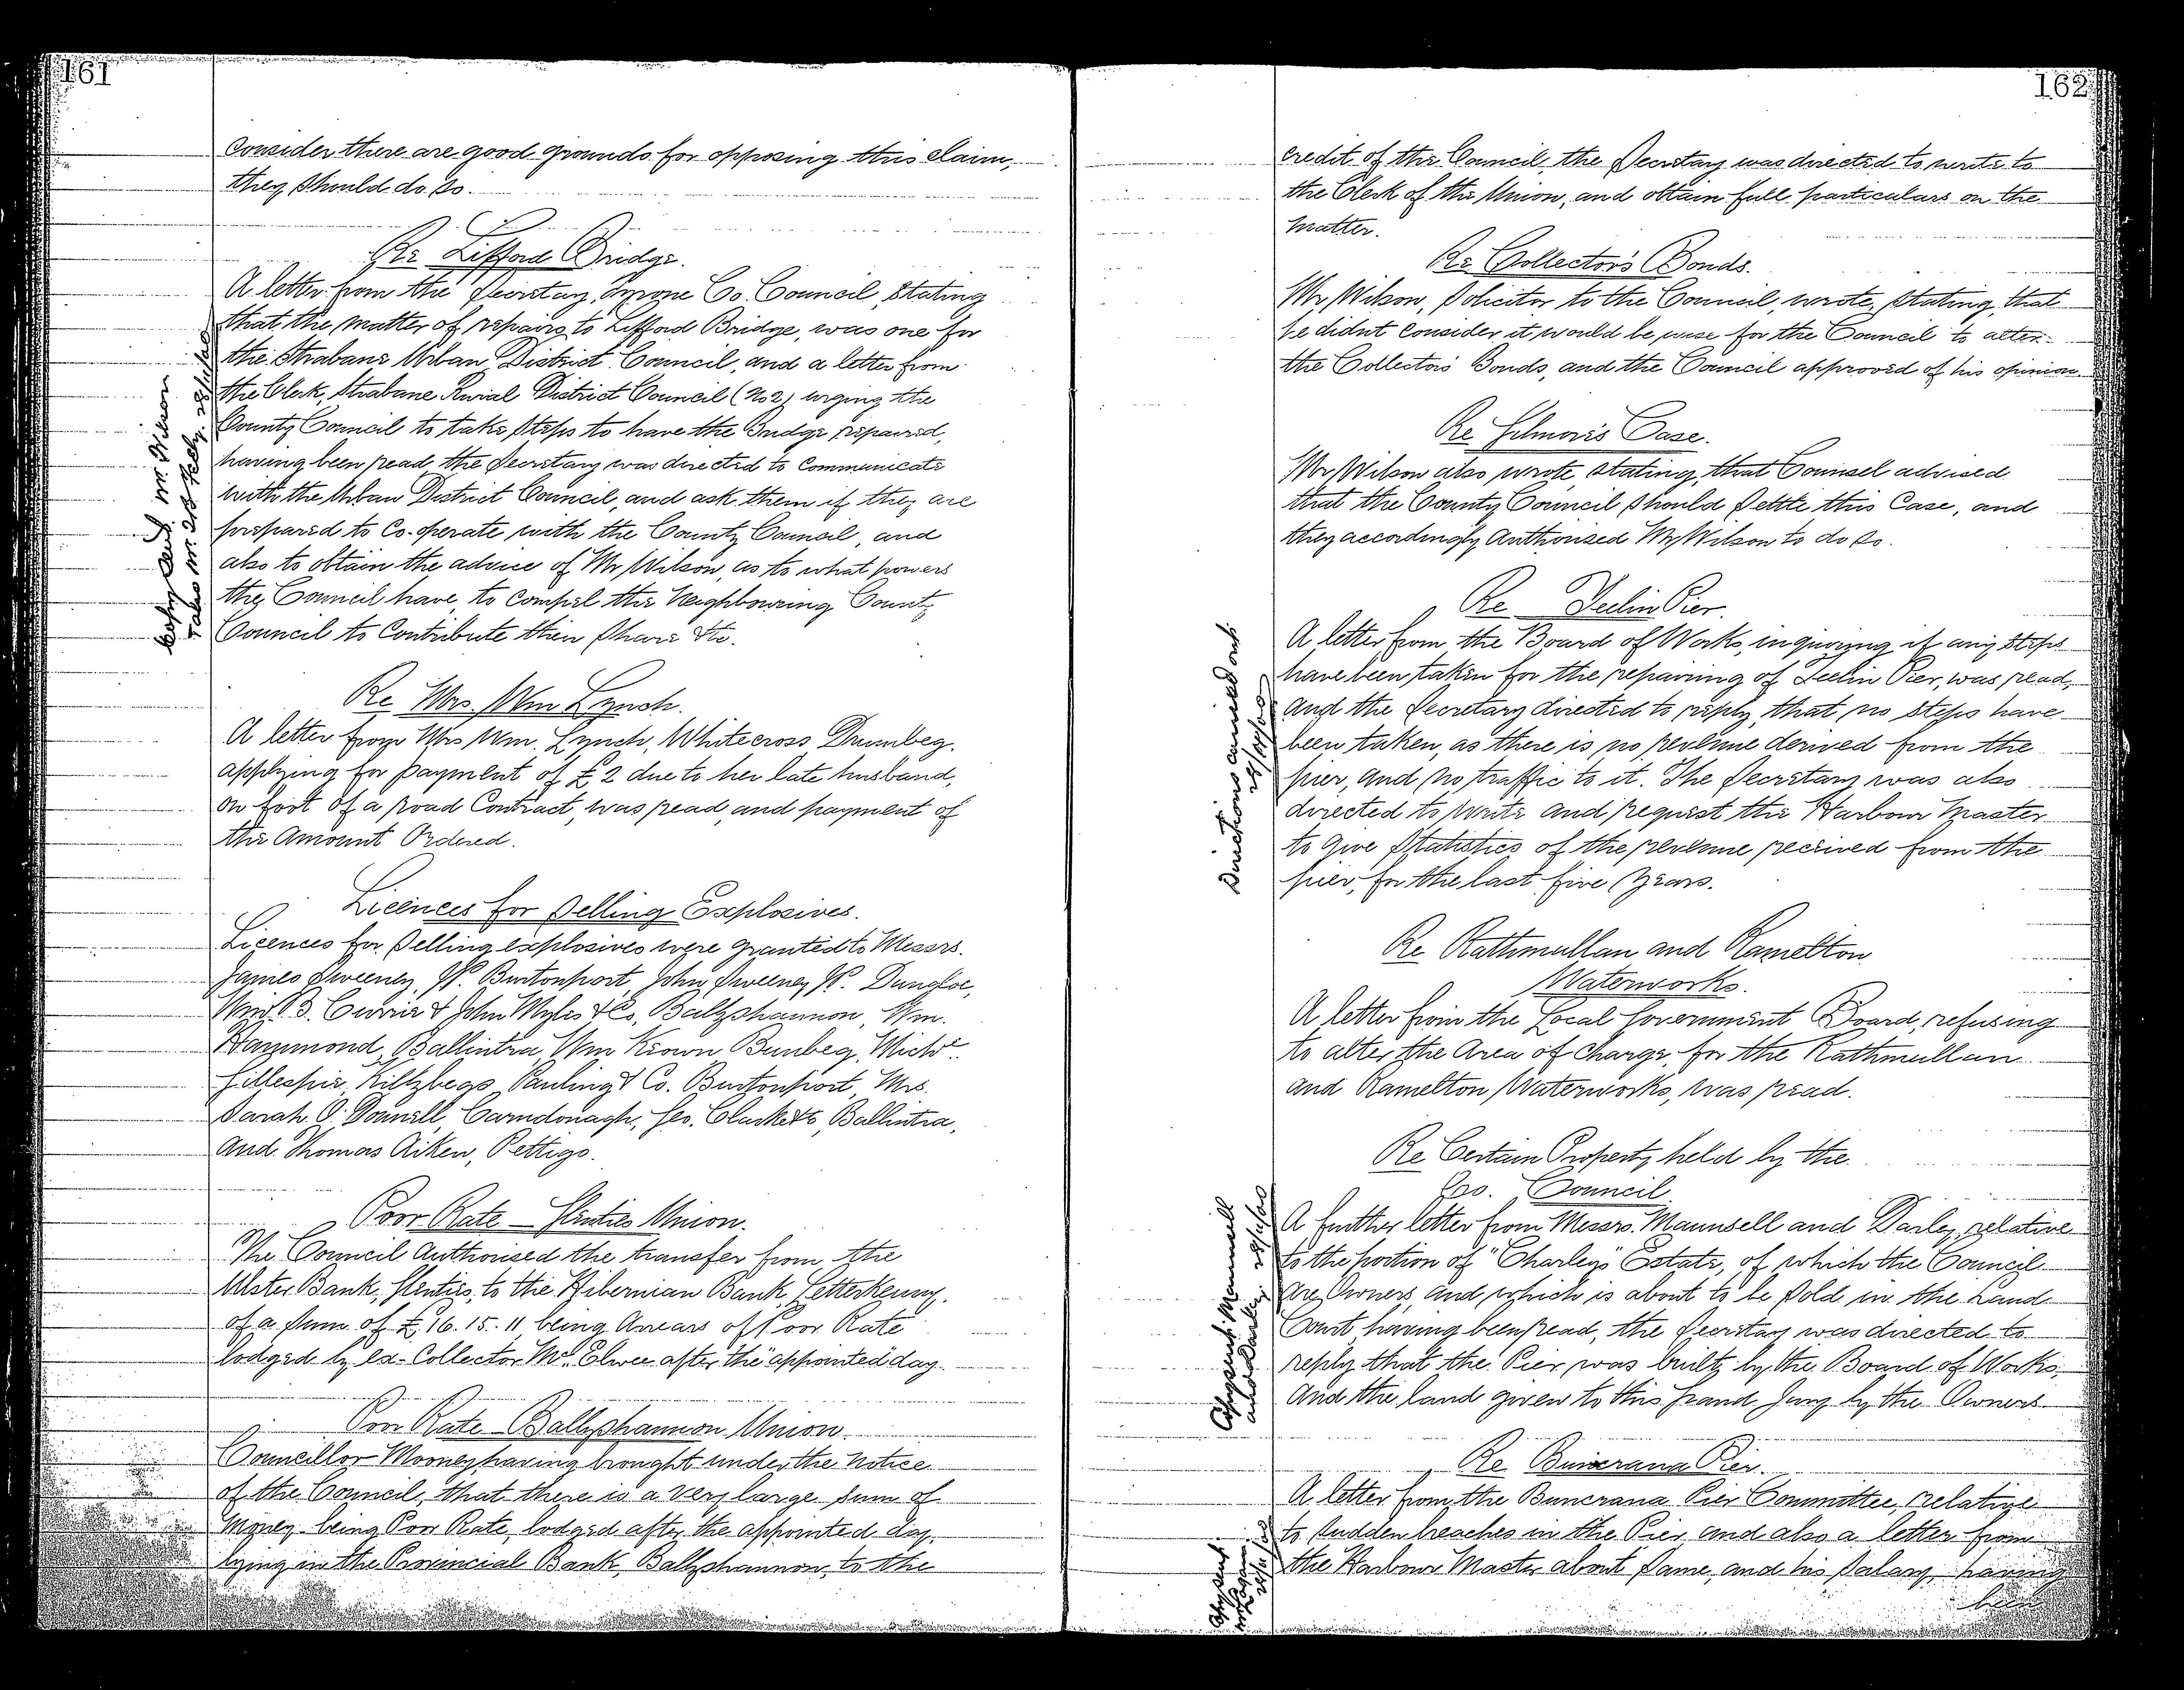 161
Consider there are good grounds for opposing this claim,
they should do so.
Re Lifford Bridge.
A letter from the Secretary, Tyrone Co. Council, stating
that the matter of repairs to Lifford Bridge, was one for
the Strabane Urban District Council, and a letter from
the Clerk, Strabane Rurial District Council (No 2) urging the
County Council to take steps to have the Bridge repaired,
having been read, the Secretary was directed to Communicate
with the Urban District Council, and ask them if they are
prepared to Co-operate with the County Council, and
also to obtain the advice of Mr Wilson, as to what powers
the Council have, to compel the Neighbouring County
Council to Contribute their share &c.
Re Mrs. Wm Lynch.
A letter from Mrs Wm. Lynch, Whitecross Drumbeg,
applying for payment of £2 due to her late husband,
on foot of a road Contract, was read, and payment of
the Amount Ordered.
Licences for Selling Explosives.
Licences for Selling explosives were granted to Messrs.
James Sweeney, Jr. Burtonport, John Sweeney Jr. Dungloe,
Wm B. Currie & John Myles & Co, Ballyshannon, Wm.
Hammond, Ballintra, Wm Keown Bunbeg, Michl
Gillespie, Kiltybegs, Pauling & Co. Burtonport, Mrs.
Sarah O'Donnell, Carndonagh, Geo. Ballintra,
and Thomas Aiken, Pettigo.
Poor Rate – Glenties Union.
The Council Authorised the transfer from the
Ulster Bank, Glenties, to the Hibernian Bank, Letterkenny,
of a sum of £16.15.11 being Arrears of Poor Rate
lodged by ex-Collector McElwee after the appointed day.
Poor Rate – Ballyshannon Union.
Councillor Mooney having brought under the notice
of the Council, that there is a very large sum of
Money being Poor Rate, lodged after the appointed day,
lying in the Provincial Bank, Ballyshannon, to the
162
credit of the Council, the Secretary was directed to write to
the Clerk of the Union, and obtain full particulars on the
matter.
Re Collector's Bonds.
Mr Wilson, Solicitor to the Council, wrote, stating, that
he didnt consider it would be wise for the Council to alter
the Collectors Bonds, and the Council approved of his opinion.
Re Gilmor's Case.
Mr Wilson also wrote, stating, that Counsel advised
that the County Council should settle this Case, and
they accordingly Authorised Mr Wilson to do so.
Re Teelin Pier.
A letter from the Board of Works, inquiring if any steps
have been taken for the repairing of Teelin Pier, was read,
and the Secretary directed to reply, that no steps have
been taken, as there is no revenue derived from the
pier, and no traffic to it. The Secretary was also
directed to write and request the Harbour Master
to give Statistics of the revenue received from the
pier, for the last five years.
Directions carried out
Re Rathmullan and Ramelton
Waterworks.
A letter from the Local Government Board, refusing
to alter the Area of Charge, for the Rathmullan
and Ramelton Waterworks, was read.
Re Certain Property held by the
Co. Council
A further letter from Messrs. Maunsell and Darley, relative
to the portion of "Charley's" Estate, of which the Council
are Owners, and which is about to be sold in the Land
Court having been read, the Secretary was directed to
reply that the Pier was built by the Board of Works,
and the land given to this Grand Jury by the Owners.
Re Buncrana Pier.
A letter from the Buncrana Pier Committee, relative
to sudden breaches in the Pier, and also a letter from
the Harbour Master about same, and his salary, having
been